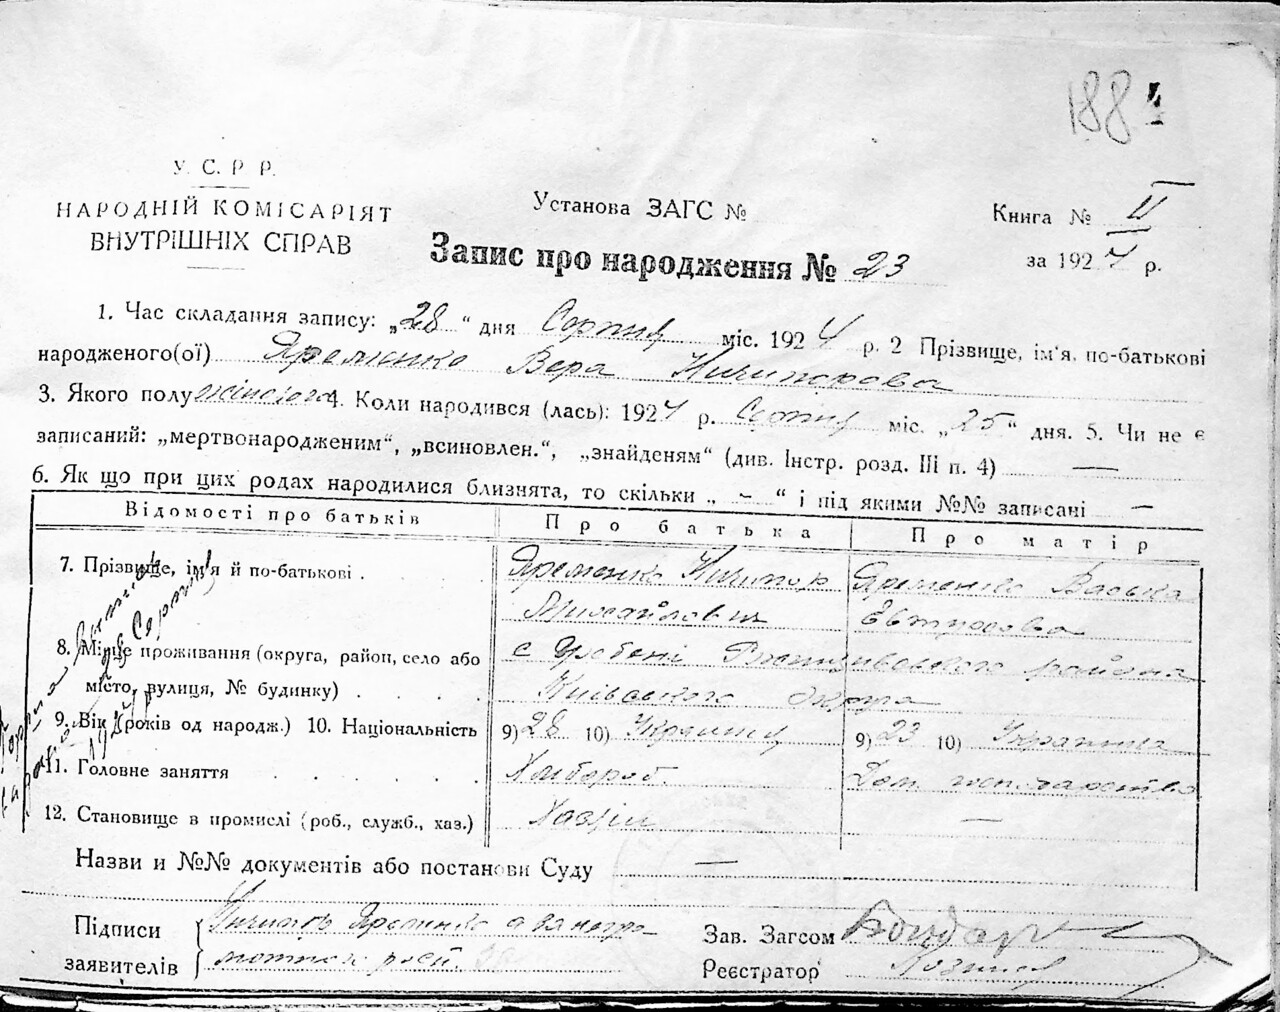 188
У. С. Р. Р.
НАРОДНІЙ КОМІСАРІЯТ
ВНУТРІШНІХ СПРАВ
Установа ЗАГС №
Книга № II
Запис про народження № 23
за 1924 р.
1. Час складання запису: „28“ дня Серпня міс. 1924 р. 2 Прізвище, ім'я, по-батькові
народженого(ої) Яременко Вера Ничипорова
3. Якого полу жіночого 4. Коли народився (лась): 1924 р. Серпня міс. „25“ дня. 5. Чи не є
записаний: „мертвонародженим“, „всиновлен.“, „знайденям“ (див. Інстр. розд. III п. 4) —
6. Як що при цих родах народилися близнята, то скільки „ - “ і під якими №№ записані —
Відомості про батьків Про батька Про матір
7. Прізвище, ім'я й по-батькові . Яременко Ничипор Яременко
Михайлович
8. Місце проживання (округа, район, село або с Ржищівського района
місто, вулиця, № будинку) . . . . Київського округа
9. Вік (років од народж.) 10. Національність 9) 28 10) Україна 9) 23 10) Українка
11. Головне заняття . . . . . . Хлібороб. Дом. господарство
12. Становище в промислі (роб., служб., хаз.) Хазяїн —
Назви и №№ документів або постанови Суду —
Підписи Ничипор Яременко а за негра-
заявителів мотного
Зав. Загсом Бондар
Реєстратор